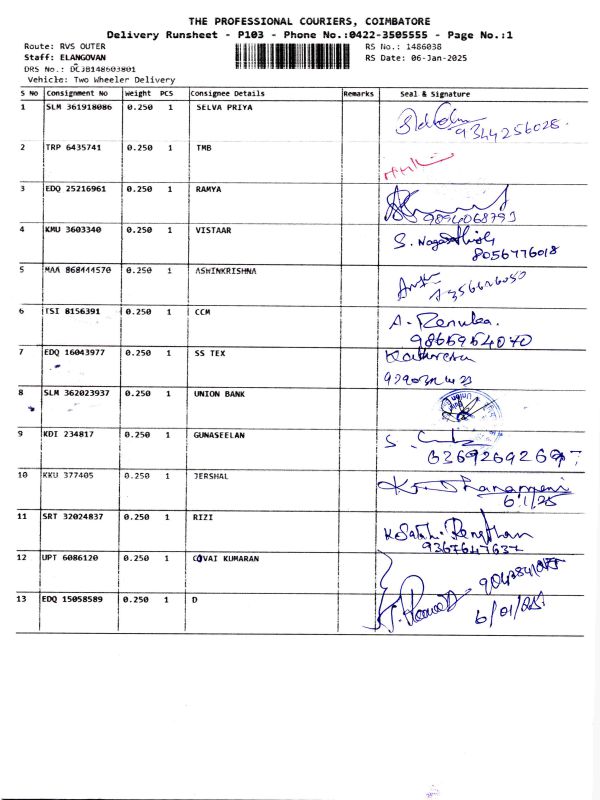 THE PROFESSIONAL COURIERS, COIMBATORE
Delivery Runsheet - P103 - Phone No.:0422-3505555 - Page No.:1
Route: RVS OUTER RS No.: 1486038
Staff: ELANGOVAN RS Date: 06-Jan-2025
DRS No.: DCJB148603801
Vehicle: Two Wheeler Delivery
S No Consignment No Weight PCS Consignee Details Remarks Seal & Signature
1 SLM 361918086 0.250 1 SELVA PRIYA
9344256028
2 TRP 6435741 0.250 1 TMB
3 EDQ 25216961 0.250 1 RAMYA
9894068793
4 KMU 3603340 0.250 1 VISTAAR S. Nagasathish
8056776018
5 MAA 868444570 0.250 1 ASHINKRISHNA
6 TSI 8156391 0.250 1 CCM A. Renuka
9865954070
7 EDQ 16043977 0.250 1 SS TEX
8 SLM 362023937 0.250 1 UNION BANK
9 KDI 234817 0.250 1 GUNASEELAN S.
10 KKU 377405 0.250 1 JERSHAL
6/1/25
11 SRT 32024837 0.250 1 RIZI
9367647637
12 UPT 6086120 0.250 1 COVAI KUMARAN
13 EDQ 15058589 0.250 1 D
6/01/25